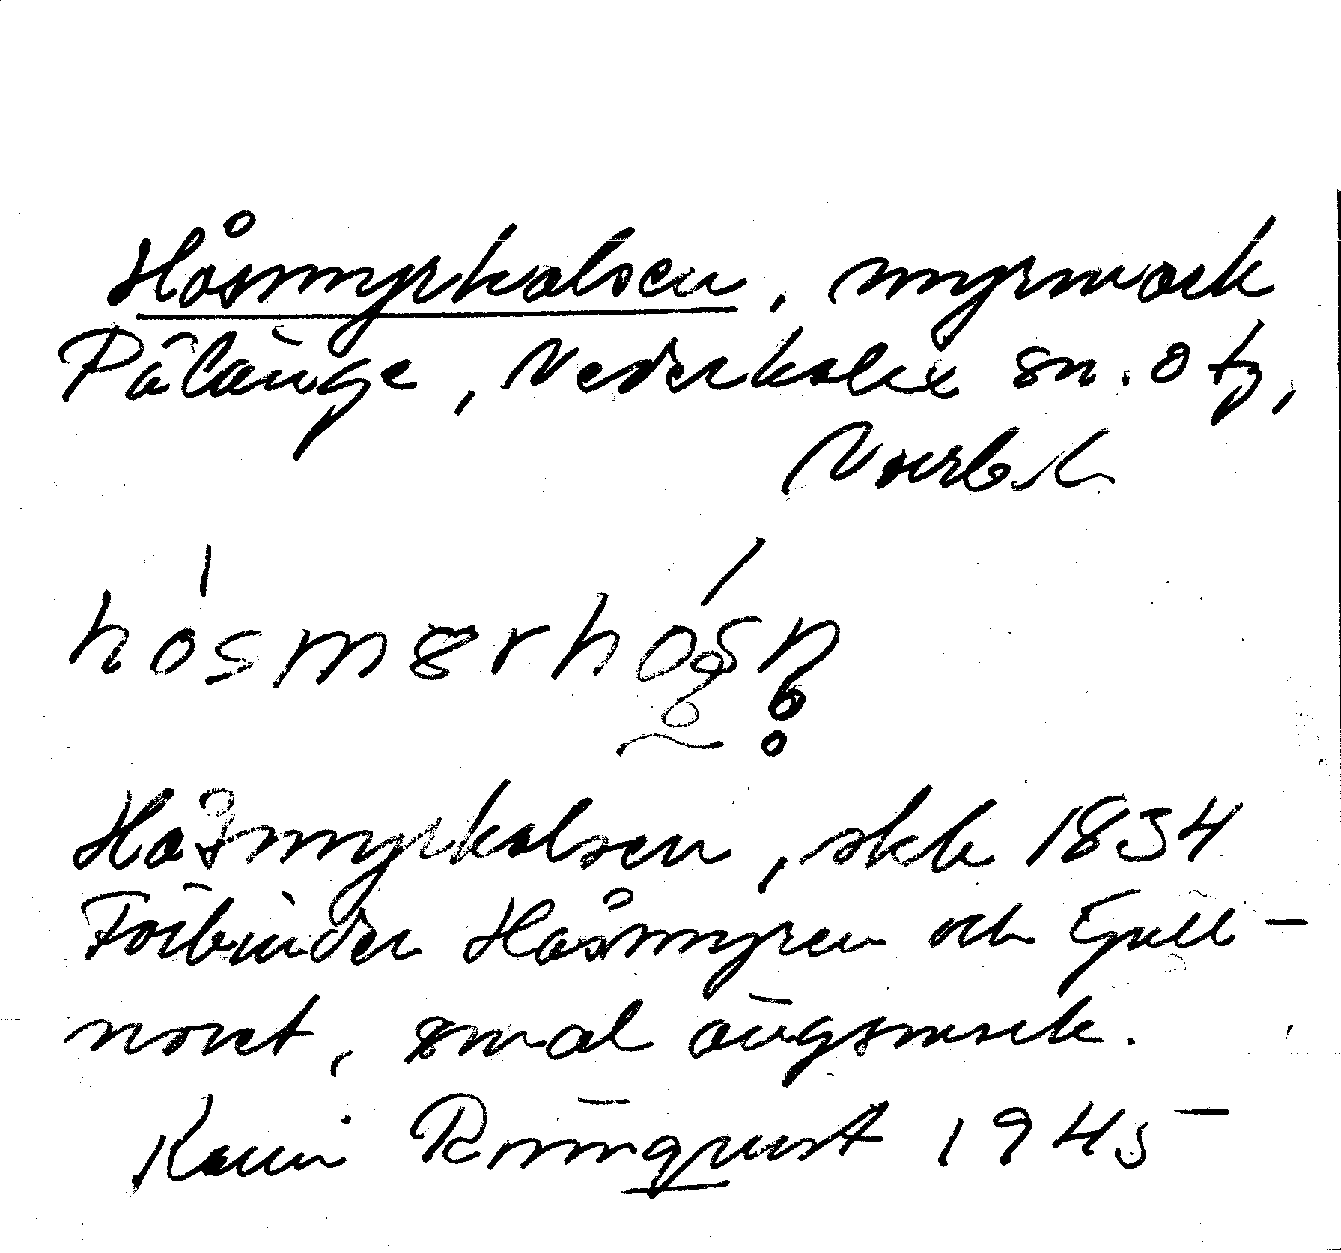 Håsmyrhalsen, myrmark
Pålänge, Nederkalix sn. otg,
Norrb. l.
Håsmyrhalsen, skh 1834
Förbinder Håsmyren och Gull-
noret, smal ängsmark.
Karin Rönnqvist 1945